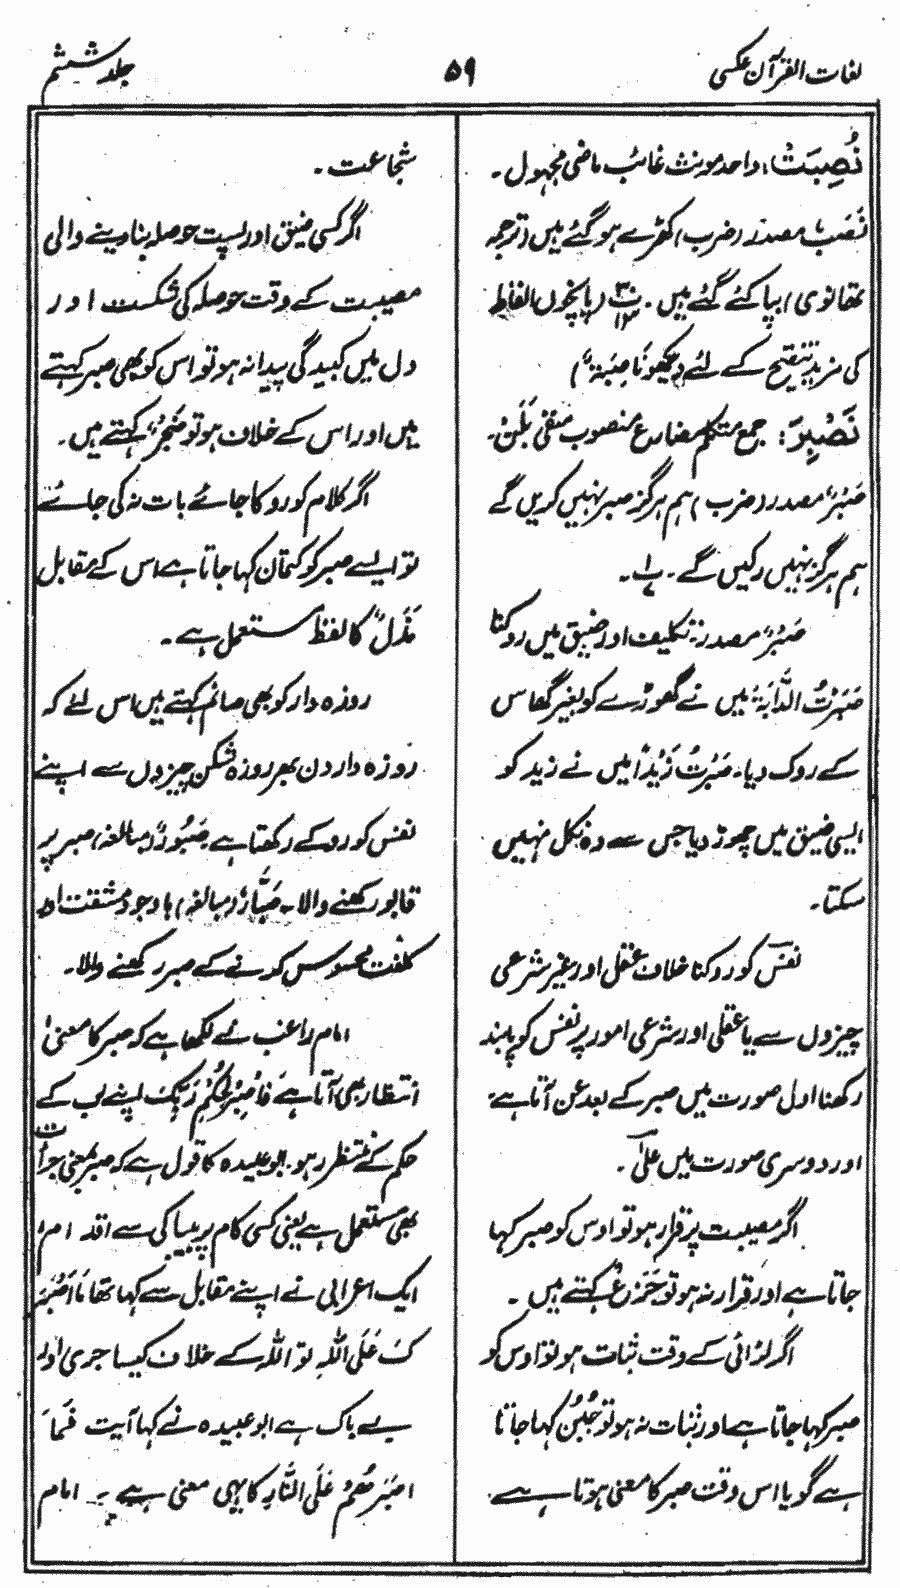 لغات القرآن عکسی
۵۹
جلد ششم
نُصِبَتْ: واحد مونث غائب ماضی مجہول۔
نَصْبٌ مصدر (ضرب) کھڑے ہو گئے ہیں (ترجمہ
تھانوی) بپا کئے گئے ہیں۔ پ۳۰ ۱۳ (پانچوں الفاظ
کی مزید تنقیح کے لئے دیکھو نَاصِبَۃٌ)
نَصْبِرَ: جمع متکلم مضارع منصوب منفی بَلَنْ۔
صَبْرٌ مصدر (ضرب) ہم ہرگز صبر نہیں کریں گے
ہم ہرگز نہیں رکیں گے۔ پ۱
صَبْرٌ مصدر: تکلیف اور ضیق میں روکنا
صَبَرْتُ الدَّابَۃَ میں نے گھوڑے کو بغیر گھاس
کے روک دیا۔ صَبَرْتُ زَیْدًا میں نے زید کو
ایسی ضیق میں چھوڑ دیا جس سے وہ نکل نہیں
سکتا۔
نفس کو روکنا خلاف عقل اور غیر شرعی
چیزوں سے یا عقلی اور شرعی امور پر نفس کو پابند
رکھنا اول صورت میں صبر کے بعد عن آتا ہے
اور دوسری صورت میں علیٰ۔
اگر مصیبت پر قرار ہو تو اوس کو صبر کہا
جاتا ہے اور قرار نہ ہو تو جَزَعٌ کہتے ہیں۔
اگر لڑائی کے وقت ثبات ہو تو اوس کو
صبر کہا جاتا ہے اور ثبات نہ ہو تو جُبُنٌ کہا جاتا
ہے گویا اس وقت صبر کا معنی ہوتا ہے
شجاعت۔
اگر کسی ضیق اور پست حوصلہ بنا دینے والی
مصیبت کے وقت حوصلہ کی شکست اور
دل میں کبیدگی پیدا نہ ہو تو اس کو بھی صبر کہتے
ہیں اور اس کے خلاف ہو تو ضَجْرٌ کہتے ہیں۔
اگر کلام کو روکا جائے بات نہ کی جائے
تو ایسے صبر کو کتمان کہا جاتا ہے اس کے مقابل
مَذْلٌ کا لفظ مستعمل ہے۔
روزہ دار کو بھی صائم کہتے ہیں اس لئے کہ
روزہ دار دن بھر روزہ شکن چیزوں سے اپنے
نفس کو روکے رکھتا ہے صَبُوْرٌ (مبالغہ) صبر پر
قابو رکھنے والا۔ صَبَّارٌ (مبالغہ) باوجود مشقت اور
کلفت محسوس کرنے کے صبر رکھنے والا۔
امام راغب نے لکھا ہے کہ صبر کا معنیٰ
انتظار بھی آتا ہے فَاصْبِرْ لِحُکْمِ رَبِّکَ اپنے رب کے
حکم کے منتظر رہو۔ ابو عبیدہ کا قول ہے کہ صبر بمعنی جرأت
بھی مستعمل ہے یعنی کسی کام پر بیباکی سے اقدام
ایک اعرابی نے اپنے مقابل سے کہا تھا مَا اَصْبَرَ
کَ عَلَی اللّٰہِ تو اللہ کے خلاف کیسا جری اور
بے باک ہے ابو عبیدہ نے کہا آیت فَمَا
اَصْبَرَھُمْ عَلَی النَّارِ کا یہی معنی ہے۔ امام